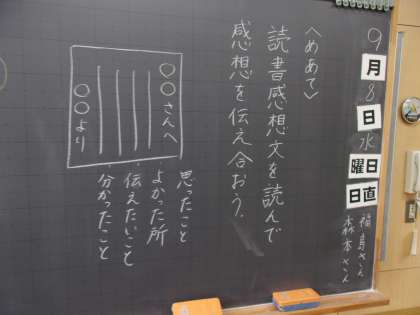 9月8日水曜日
日直
福島さん
森本さん
〈めあて〉
読書感想文を読んで
感想を伝え合おう。
○○さんへ
○○より
思ったこと
よかった所
伝えたいこと
分かったこと